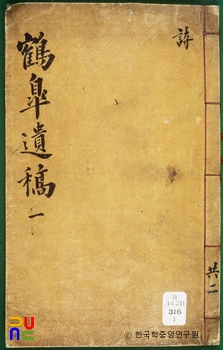 詩
鶴皐遺稿
一
共二
316
1
ⓒ 한국학중앙연구원